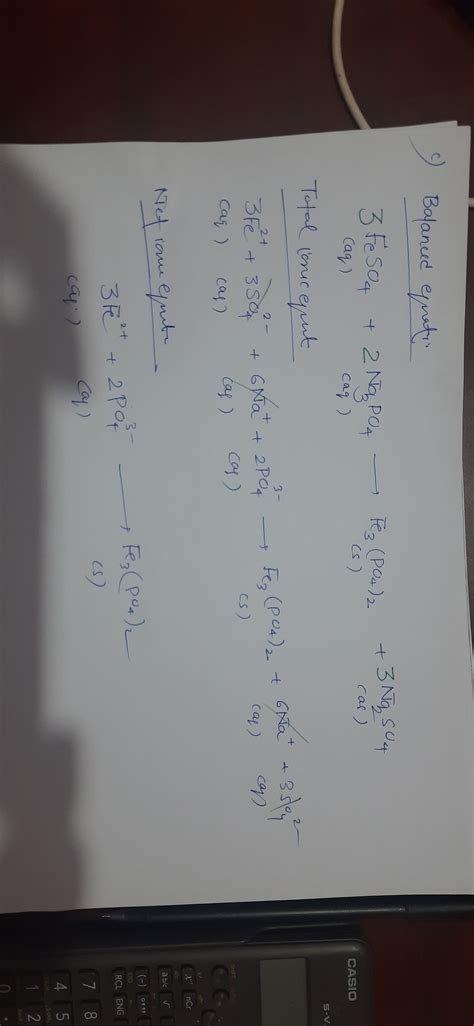 c) Balanced equatn:
3FeSO4 + 2Na3PO4 → Fe3(PO4)2 + 3Na2SO4
(aq) (aq) (s) (aq)
Total ionic equnt
3Fe2+ + 3SO42- + 6Na+ + 2PO43- → Fe3(PO4)2 + 6Na+ + 3SO42-
(aq) (aq) (aq) (aq) (s) (aq) (aq)
Net ionic equatn
3Fe2+ + 2PO43- → Fe3(PO4)2
(aq) (aq) (s)
CASIO
S-V
x-1 nCr
abc √
(-) o,,,
RCL ENG
7 8
4 5
1 2
0